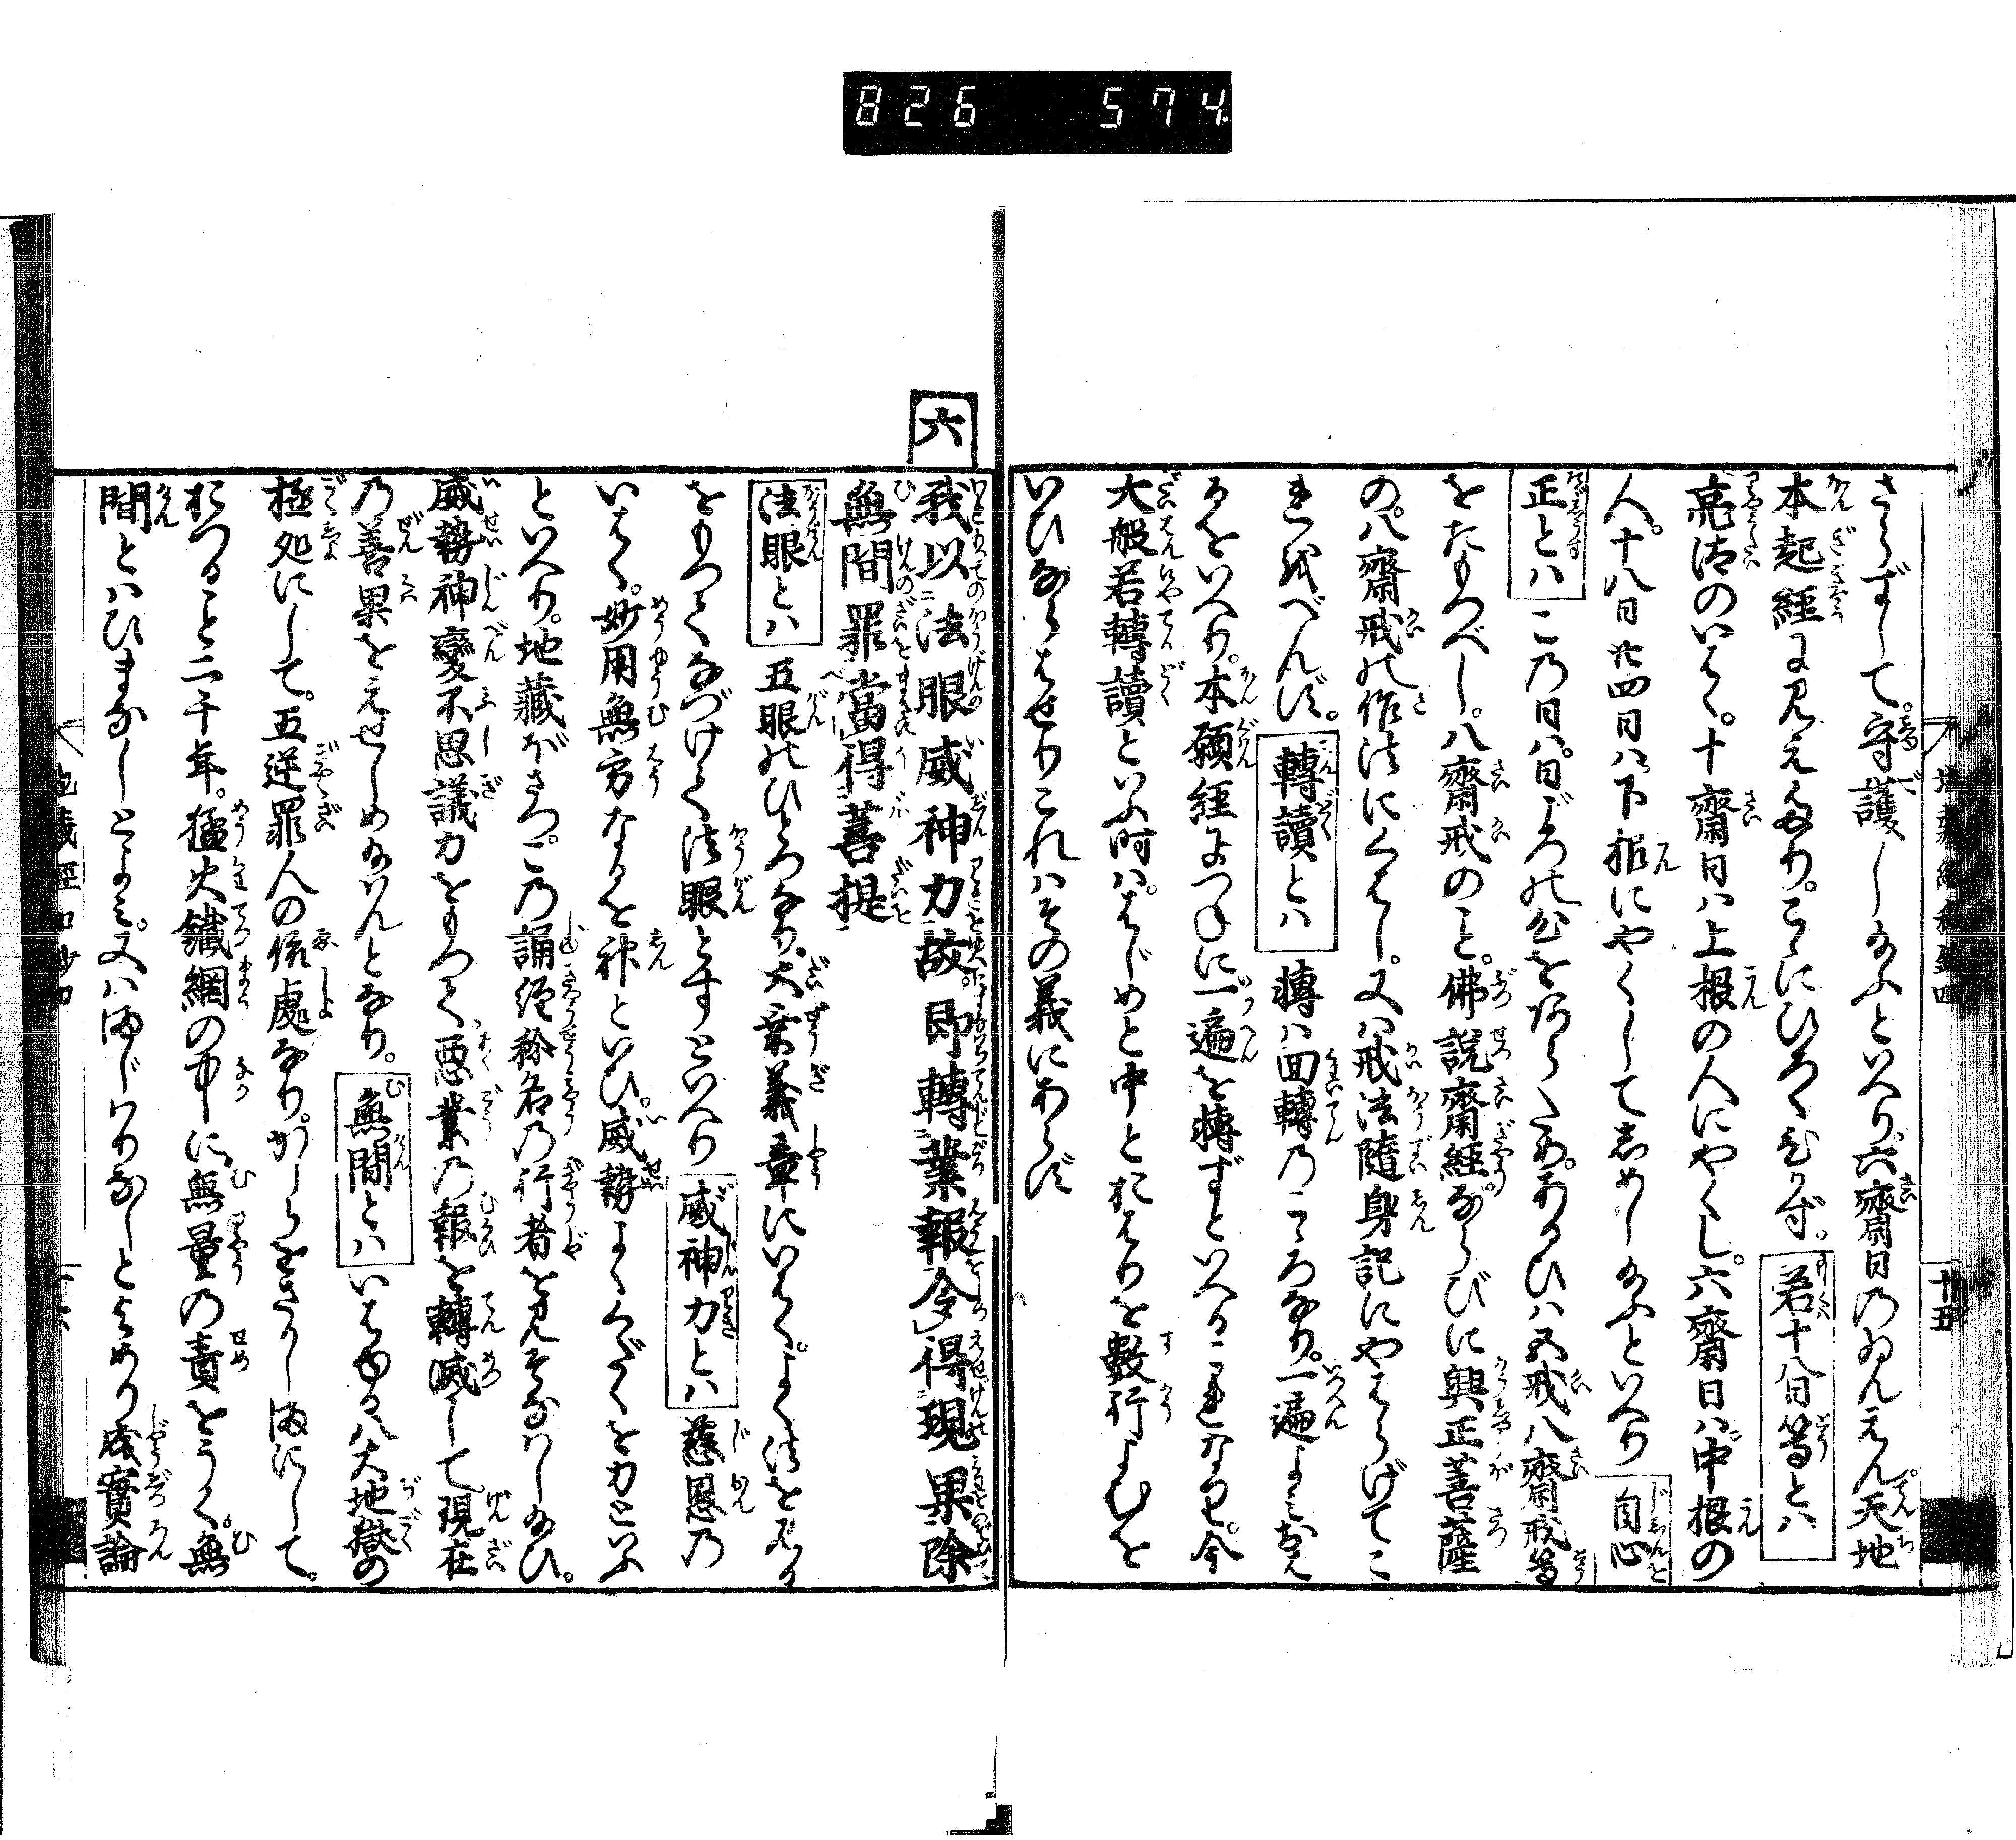 826 574
さらずして。守護し給ふといへり。六齋日のゐんえん。天地
本起經に見えたり。こゝにひろくせず。若十八日等とは
亮汰のいはく。十齋日ハ上根の人にやくし。六齋日ハ。中根の
人。十八日廿四日ハ。下根にやくしてしめし給ふといへり 自心
正とハ この日ハ。日ごろの
をたもつべし。八齋戒のこと。佛説齋經。ならびに興正菩薩
の。八齋戒の作法にくはし。又ハ戒法隨身記にやはらげてこ
れを べんず。轉讀とハ 轉ハ回轉のこころなり。一遍よみおへ
るをいへり。本願經よつねに一遍を轉ずといへるこれなり。今
大般若轉讀といふ時ハ。はじめと中とおはりを數行よむを
いひならはせりこれハその義にあらず
六
我以法眼威神力故。即轉業報令得現果除
無間罪當得菩提
法眼とハ 五眼のひとつなり。大乘義章にいはく。よく法を見る
をもつてなづけて法眼とすといへり 威神力とハ 慈恩の
いはく。妙用無方なるを神といひ。威勢よくくだくを力といふ
といへり。地藏ぼさつ。この誦經稱名の行者を見そなハし給ひ。
威勢神變不思議力をもつて。惡業の報を轉滅して。現在
の善果をえせしめ給はんとなり。無間とハ いはゆる八大地獄の
極処にして。五逆罪人の依處なり。かしらをさかしまにして。
おつること二千年。猛火鐵網の中に。無量の責をうく。無
間とハひまなしとよみ。又ハまじはりなしとよめり 成實論
地藏經和鈔四
十五